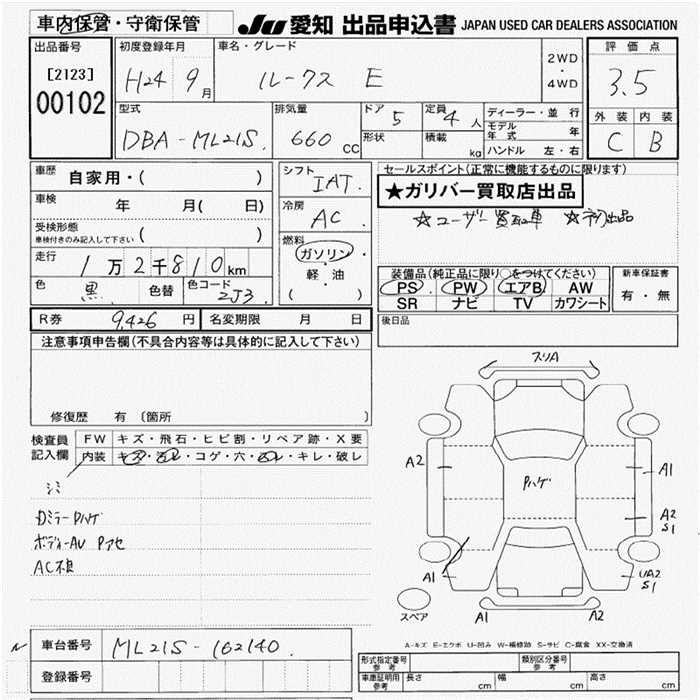 車内保管・守衛保管
JU 愛知 出品申込書 JAPAN USED CAR DEALERS ASSOCIATION
出品番号
[2123]
00102
初度登録年月
H24 9月
車名・グレード
ルークス E
2WD
・
4WD
評価点
3.5
外装 内装
C B
型式
DBA-ML21S.
排気量
660 cc
ドア 5
形状
定員 4人
積載 kg
ディーラー・並行
モデル年式 年
ハンドル 左・右
車歴
自家用・( )
車検
年 月( 日)
受検形態
車検付きのみ記入して下さい ( )
走行
1万2千810km
色 黒 色替 色コード 2J3.
シフト
IAT.
冷房
AC.
燃料
ガソリン・
軽・油
( )
セールスポイント(正常に機能するものに限ります)
★ガリバー買取店出品
☆ユーザー買取車 ☆初出品
装備品(純正品に限り○をつけてください)
PS PW エアB AW
SR ナビ TV カワシート
新車保証書
有・無
後日品
R券 9,426 円 名変期限 月 日
注意事項申告欄(不具合内容等は具体的に記入して下さい)
修復歴 有 〔箇所 〕
検査員
記入欄
FW キズ・飛石・ヒビ割・リペア跡・X要
内装 キズ・汚レ・コゲ・穴・凹レ・キレ・破レ
シミ
Dミラー Pハゲ
ボディーAU Pアセ
AC不良
スリA
A2
Pハゲ
A1
A2
S1
A1
UA2
S1
スペア
A1 A2
A-キズ E-エクボ U-凹み W-補修跡 S-サビ C-腐食 XX-交換済
車台番号 ML21S-162140.
登録番号
形式指定番号
参考
類別区分番号
参考
車庫証明用
参考
長さ cm 幅 cm 高さ cm